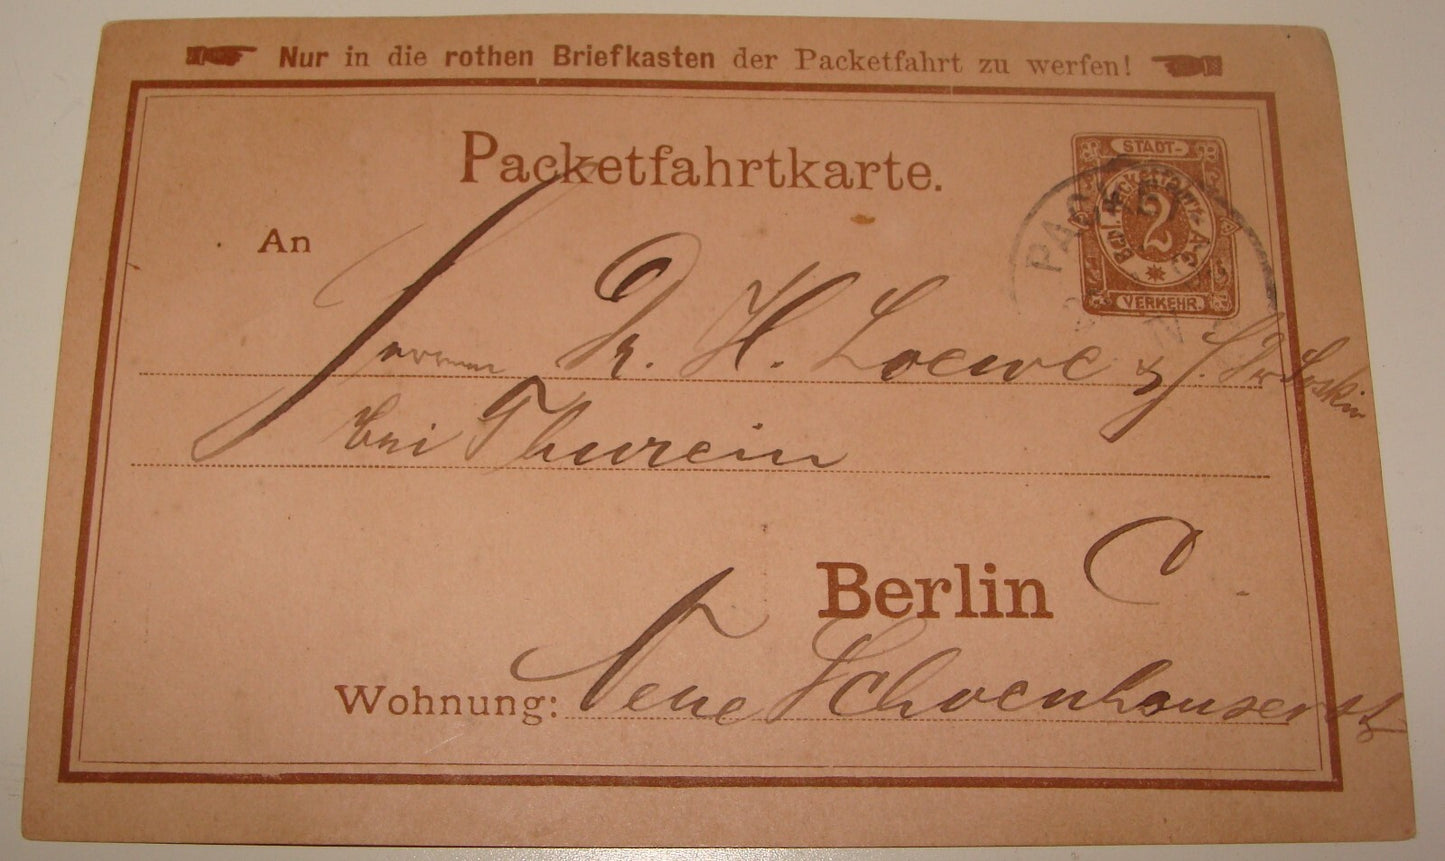 Nur in die rothen Briefkasten der Packetfahrt zu werfen!
Packetfahrtkarte.
STADT-
Berl. Packetfahrt-A.G.
2
VERKEHR.
PACK
An
Herrn Dr. H. Loewe
bei Thurein
Berlin C.
Wohnung: Neue Schoenhauserst